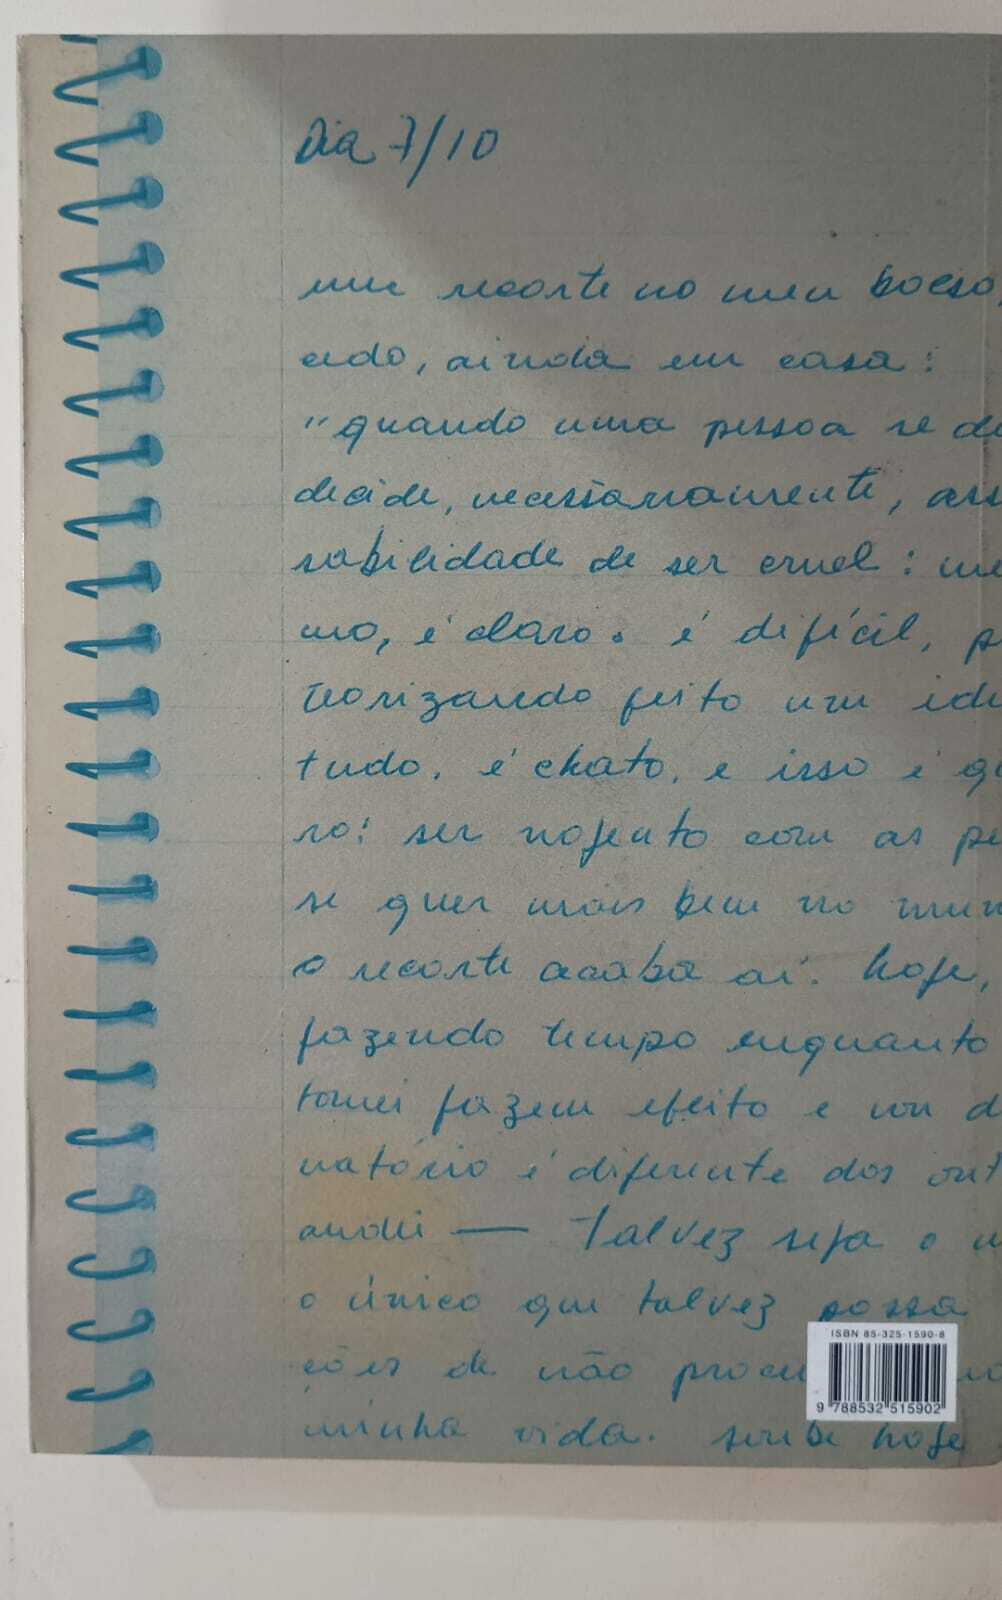 Dia 7/10
um recorte no meu bolso,
cido, ainda em casa:
"quando uma pessoa se de
decide, necessariamente, ass
sabilidade de ser cruel: me
mo, é claro. é difícil, p
teorizando feito um idi
tudo. é chato. e isso é qu
ro: ser nojento com as pe
se quer mais bem no mun
o recorte acaba aí. hoje,
fazendo tempo enquanto
tomei fazem efeito e vou d
natório é diferente dos out
andei — talvez seja o
o único que talvez possa
ções de não procu
minha vida. soube hoje
ISBN 85-325-1590-8
9 788532 515902